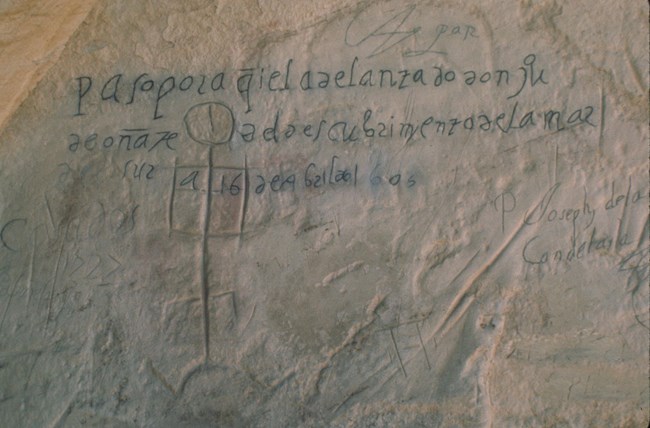 paso por aq̄i el adelantado don ju̅
de oñate del descubrimento de la mar
del sur a 16 de Abril del 1605
P Joseph de la
Candelaria